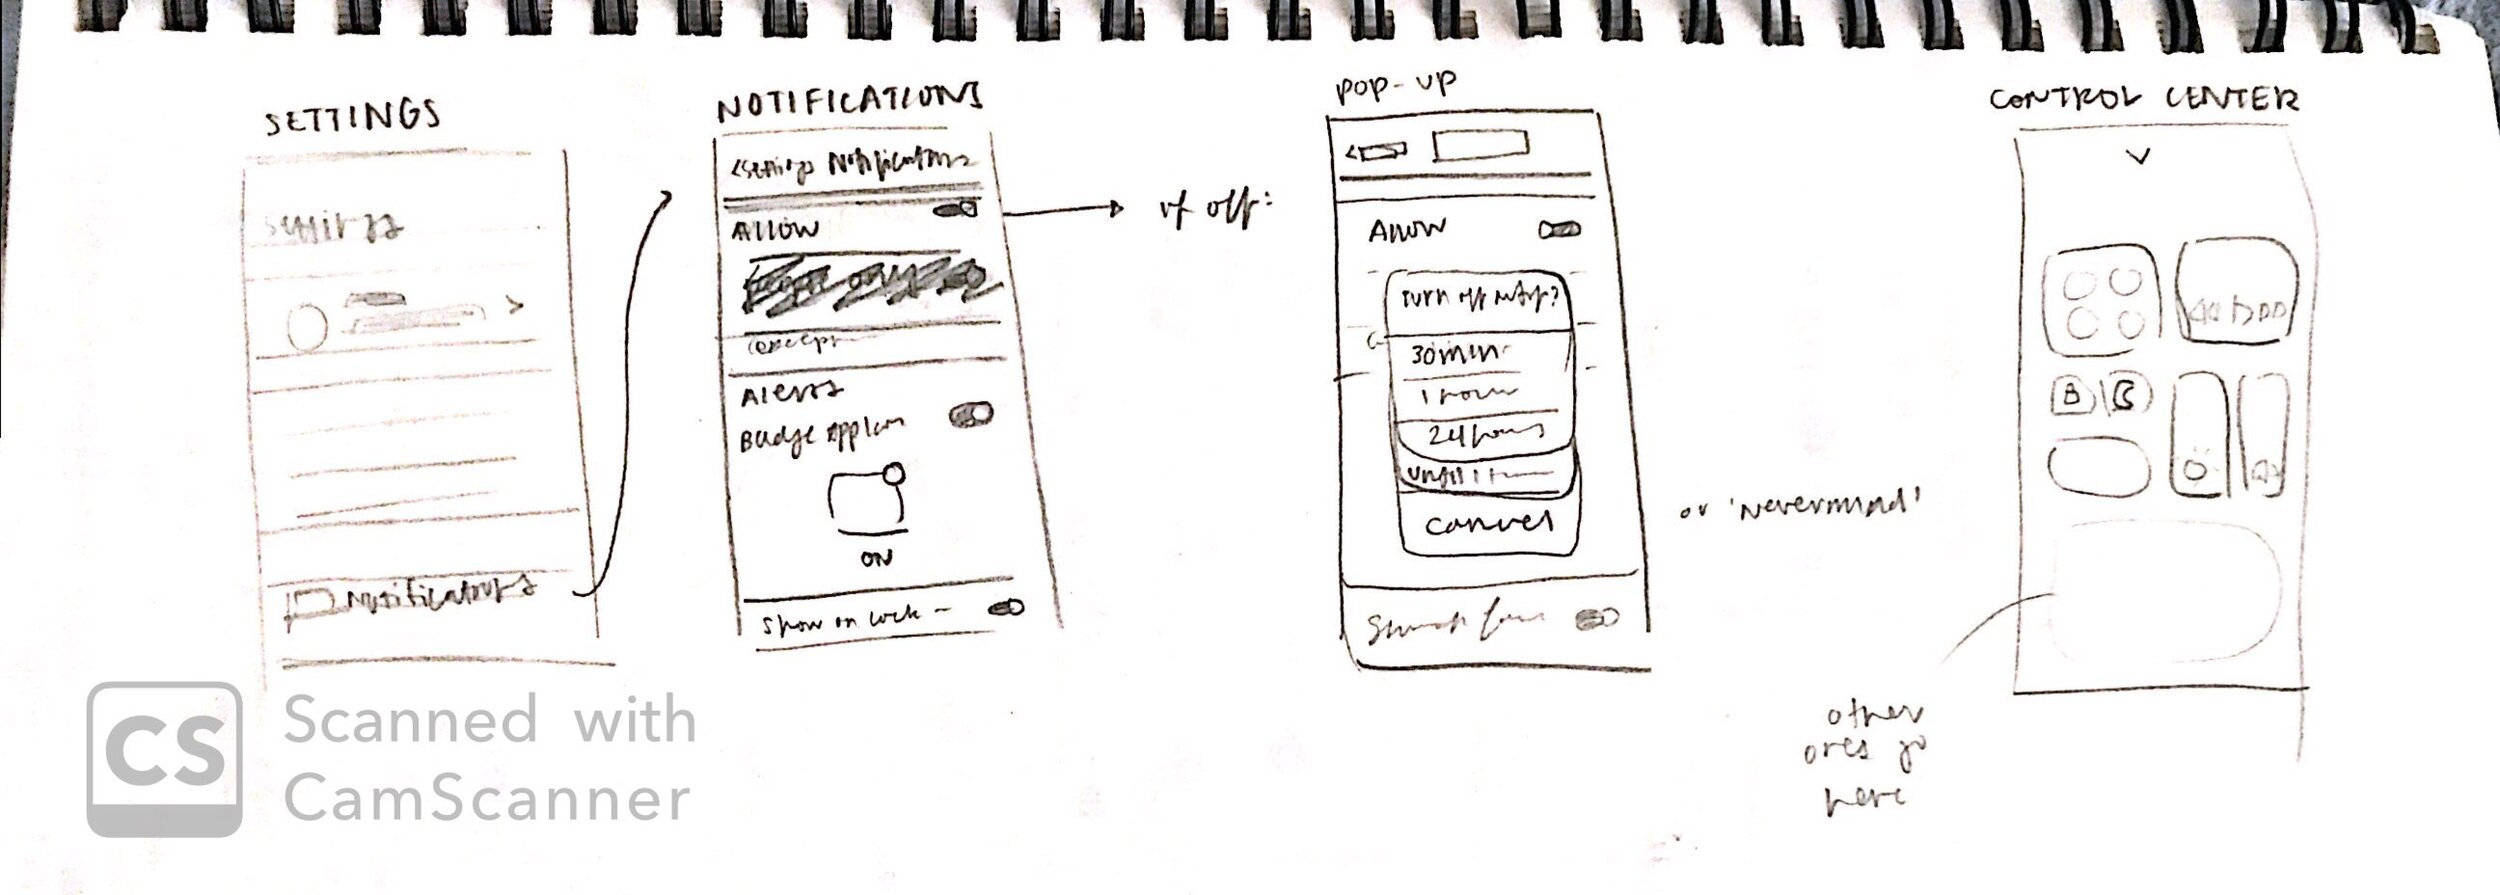 SETTINGS
Settings
Notifications
NOTIFICATIONS
<Settings Notifications
Allow
(except
Alerts
Badge App Icon
ON
Show on lock -
if off:
POP-UP
Allow
Turn off notifs?
30 min
1 hour
24 hours
until I turn
cancel
or 'Nevermind'
CONTROL CENTER
B
other
ones go
here
CS
Scanned with
CamScanner